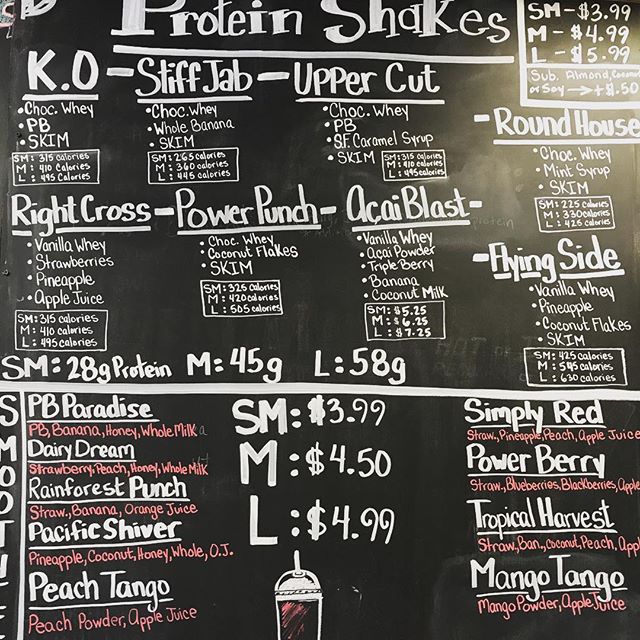 Protein Shakes
SM - $3.99
M - $4.99
L - $5.99
Sub. Almond, Coconut
or Soy → +$1.50
K.O - Stiff Jab - Upper Cut
• Choc. Whey
• PB
• SKIM
SM: 315 calories
M: 410 calories
L: 495 calories
• Choc. Whey
• Whole Banana
• SKIM
SM: 265 calories
M: 360 calories
L: 445 calories
• Choc. Whey
• PB
• S.F. Caramel Syrup
• SKIM
SM: 315 calories
M: 410 calories
L: 495 calories
- Round House
• Choc. Whey
• Mint Syrup
• SKIM
SM: 225 calories
M: 330 calories
L: 425 calories
Right Cross - Power Punch - Açai Blast -
• Vanilla Whey
• Strawberries
• Pineapple
• Apple Juice
SM: 315 calories
M: 410 calories
L: 495 calories
• Choc. Whey
• Coconut Flakes
• SKIM
SM: 325 calories
M: 420 calories
L: 505 calories
• Vanilla Whey
• Açai Powder
• Triple Berry
• Banana
• Coconut Milk
SM: $5.25
M: $6.25
L: $7.25
- Flying Side
• Vanilla Whey
• Pineapple
• Coconut Flakes
• SKIM
SM: 425 calories
M: 545 calories
L: 630 calories
SM: 28g Protein M: 45g L: 58g
PB Paradise
PB, Banana, Honey, Whole Milk
Dairy Dream
Strawberry, Peach, Honey, Whole Milk
Rainforest Punch
Straw., Banana, Orange Juice
Pacific Shiver
Pineapple, Coconut, Honey, Whole, O.J.
Peach Tango
Peach Powder, Apple Juice
SM: $3.99
M: $4.50
L: $4.99
Simply Red
Straw., Pineapple, Peach, Apple Juice
Power Berry
Straw., Blueberries, Blackberries, Apple
Tropical Harvest
Straw., Ban., Coconut, Peach, Appl
Mango Tango
Mango Powder, Apple Juice